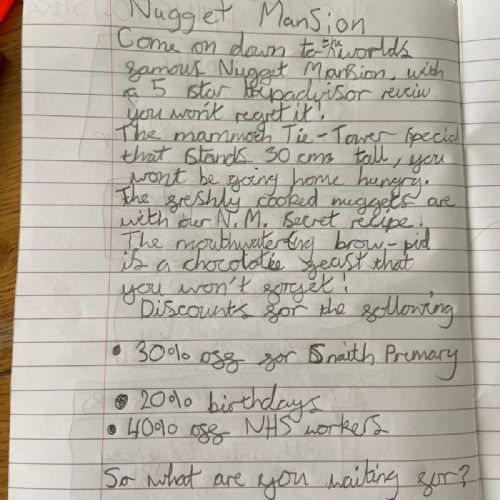 Nugget Mansion
Come on down to the worlds
famous Nugget Mansion, with
a 5 star tripadvisor reviw
you won't regret it!
The mammoth Tie-Tower special
that stands 30 cms tall, you
wont be going home hungry.
The freshly cooked nuggets are
with our N.M. secret recipe!
The mouthwatering brow-pid
is a chocolotie feast that
you won't forget!
Discounts for the following
• 30% off for Snaith Premary
• 20% birthdays
• 40% off NHS workers
So what are you waiting for?